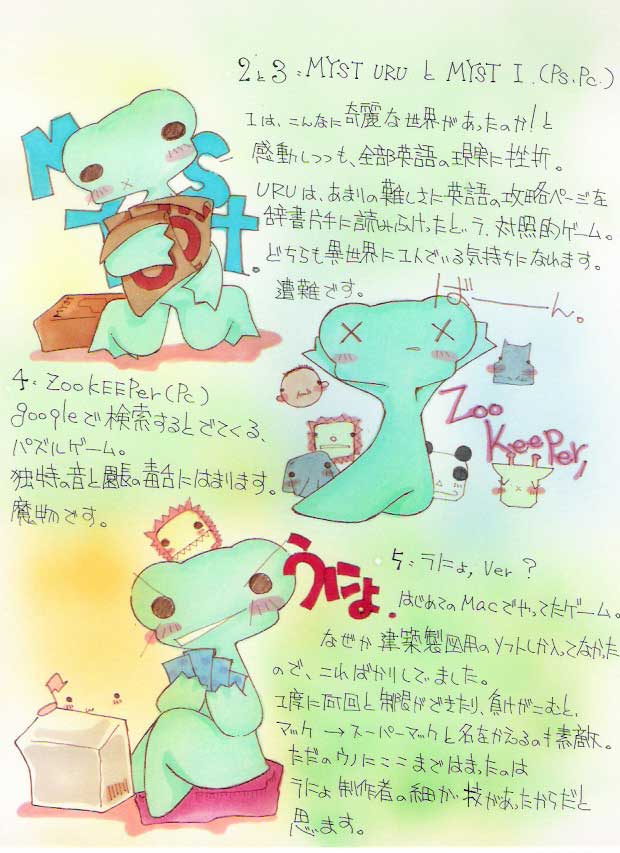 2と3：MYST URU と MYST I．(Ps.Pc.)
Iは、こんなに奇麗な世界があったのか！と
感動しつつも、全部英語の現実に挫折。
URUは、あまりの難しさに英語の攻略ページを
辞書片手に読みつづけたという、対照的ゲーム。
どちらも異世界に入んでいる気持ちになれます。
遭難です。
Myst.
ばーーん。
4：ZooKEEPer(Pc)
googleで検索するとでてくる、
パズルゲーム。
独特の音と園長の毒舌にはまります。
魔物です。
Zoo
KeePer,
うにょ.
5：うにょ, Ver ?
はじめてのMacでやってたゲーム。
なぜか建築製図用のソフトしか入ってなかった
ので、こればかりしてました。
1度に何回と制限ができたり、負けがこむと、
マック → スーパーマックと名をかえるのも素敵。
ただのウノにここまではまったのは
うにょ制作者の細か 技があったからだと
思います。